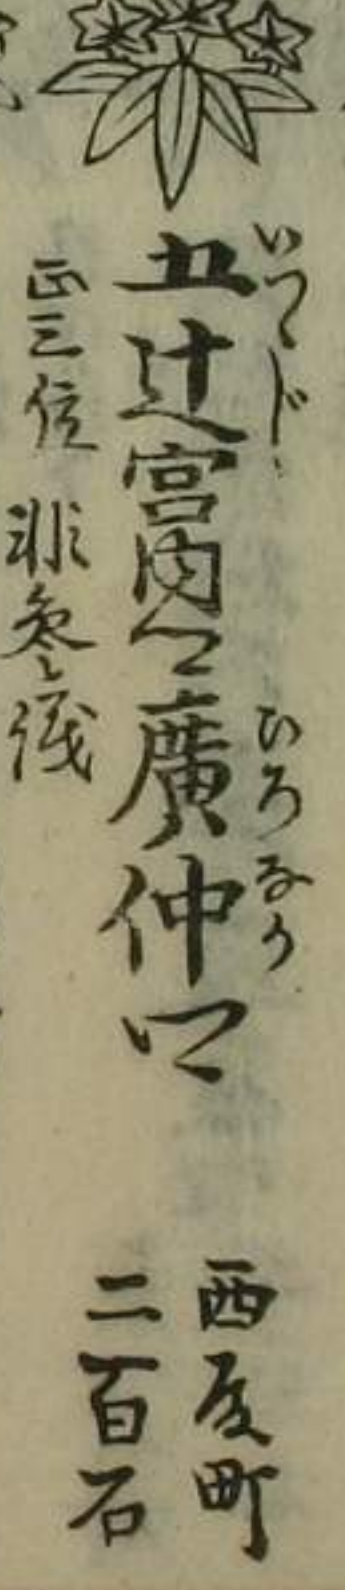 いつゝじ
五辻宮内卿廣仲卿
ひろなか
正三位 非參議
西殿町
二百石